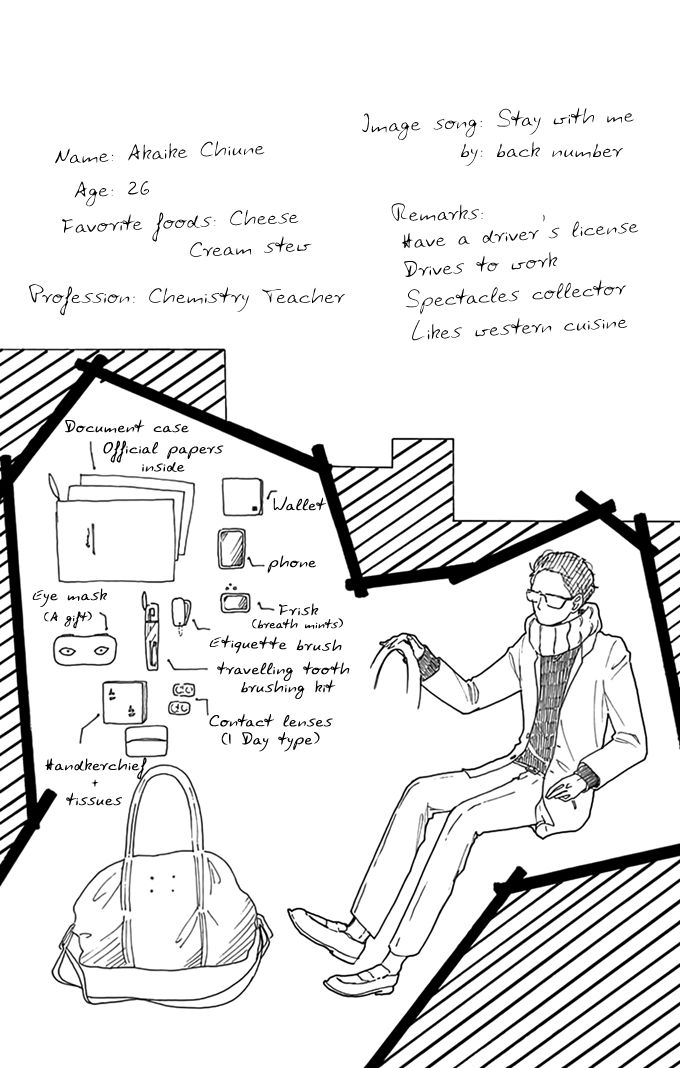 Name: Akaike Chiune
Age: 26
Favorite foods: Cheese
Cream stew
Profession: Chemistry Teacher
Image song: Stay with me
by: back number
Remarks:
Have a driver's license
Drives to work
Spectacles collector
Likes western cuisine
Document case
Official papers
inside
Wallet
phone
Eye mask
(A gift)
Frisk
(breath mints)
Etiquette brush
travelling tooth
brushing kit
Contact lenses
(1 Day type)
Handkerchief
+
tissues